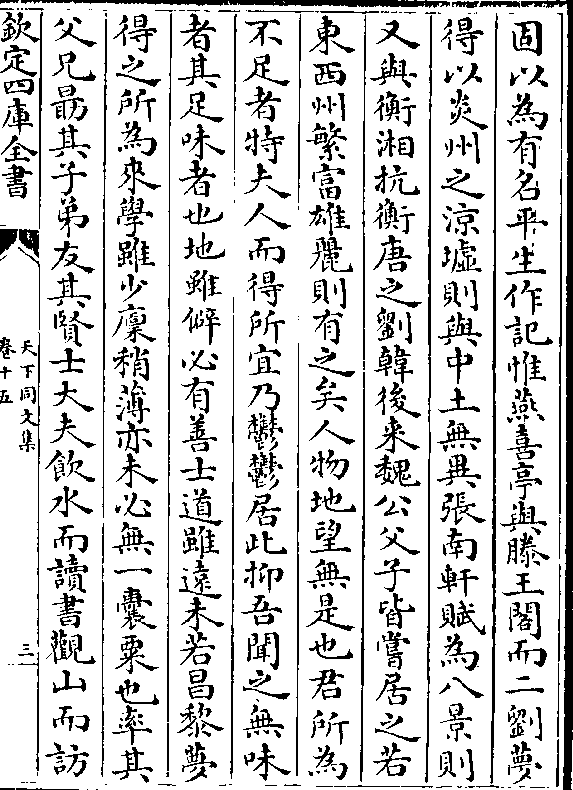 固以為有名平生作記惟燕喜亭與滕王閣而二劉夢
得以炎州之涼墟則與中土無異張南軒賦為八景則
又與衡湘抗衡唐之劉韓後来魏公父子皆嘗居之若
東西州繁富雄麗則有之矣人物地望無是也君所為
不足者特夫人而得所宜乃鬱鬱居此抑吾聞之無味
者其足味者也地雖僻必有善士道雖遠未若昌黎夢
得之所為來學雖少廩稍薄亦未必無一囊粟也率其
父兄勗其子弟友其賢士大夫飲水而讀書觀山而訪
欽定四庫全書
天下同文集
卷十五
三